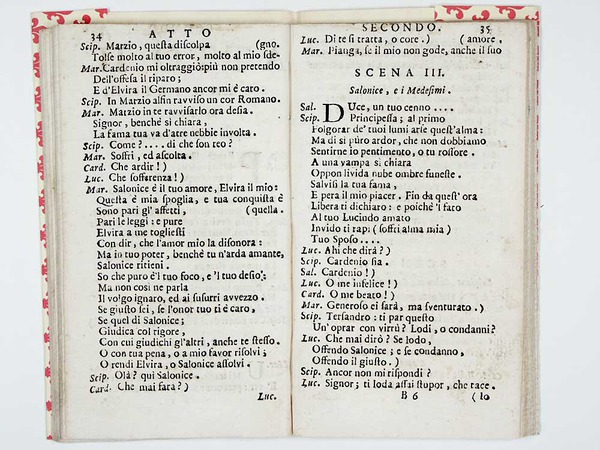 34 ATTO
Scip. Marzio, questa discolpa (gno.
Tolse molto al tuo error, molto al mio sde-
Mar. Cardenio mi oltraggiò: più non pretendo
Dell'offesa il riparo;
E d'Elvira il Germano ancor mi è caro.
Scip. In Marzio alfin ravviso un cor Romano.
Mar. Marzio in te ravvisi ora
Signor, benchè si chiara,
La fama tua va d'atre nebbie involta.
Scip. Come?.... di che son reo?
Mar. Soffri, ed ascolta.
Card. Che ardir!)
Luc. Che sofferenza!)
Mar. Salonice è il tuo amore, Elvira il mio:
Questa è mia spoglia, e tua conquista è
Sono pari gl' affetti, (quella.
Pari le leggi: e pure
Elvira a me togliesti
Con dir, che l'amor mio la disonora:
Ma in tuo poter, benchè tu n'arda amante,
Salonice ritieni.
So che puro è 'l tuo foco, e 'l tuo desio;
Ma non così ne parla
Il volgo ignaro, ed ai susurri avvezzo.
Se giusto sei, se l'onor tuo ti è caro,
Se quel di Salonice;
Giudica col rigore,
Con cui giudichi gl'altri, anche te stesso.
O con tua pena, o a mio favor risolvi;
O rendi Elvira, o Salonice assolvi.
Scip. Olà? qui Salonice.
Card. Che mai farà?)
Luc.
SECONDO. 35
Luc. Di te si tratta, o core.) (amore.
Mar. Pianga, se il mio non gode, anche il suo
SCENA III.
Salonice, e i Medesimi.
Sal. DUce, un tuo cenno....
Scip. Principessa; al primo
Folgorar de' tuoi lumi arse quest'alma:
Ma di sì puro ardor, che non dobbiamo
Sentirne io pentimento, o tu rossore.
A una vampa sì chiara
Oppon livida nube ombre funeste.
Salvisi la tua fama,
E pera il mio piacer. Fin da quest' ora
Libera ti dichiaro: e poichè 'l fato
Al tuo Lucindo amato
Invido ti rapì (soffri alma mia)
Tuo Sposo....
Luc. Ahi che dirà?)
Scip. Cardenio sia.
Sal. Cardenio!)
Luc. O me infelice!)
Card. O me beato!)
Mar. Generoso ei sarà, ma sventurato.)
Scip. Tersandro: ti par questo
Un'oprar con virtù? Lodi, o condanni?
Luc. Che mai dirò? Se lodo,
Offendo Salonice; e se condanno,
Offendo il giusto.)
Scip. Ancor non mi rispondi?
Luc. Signor; ti loda assai stupor, che tace.
B 6 (Io